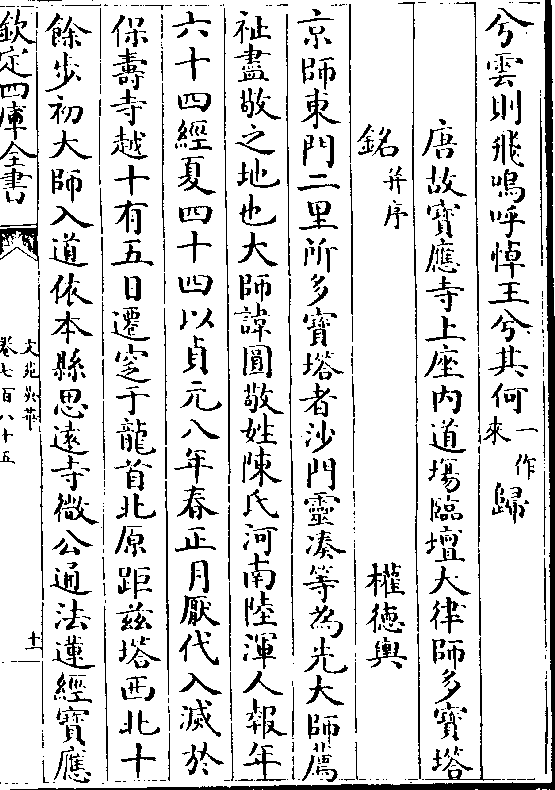 兮雲則飛嗚呼悼王兮其何一作來歸
唐故寶應寺上座內道場臨壇大律師多寶塔
銘并序
權德輿
京師東門二里所多寶塔者沙門靈湊等為先大師薦
祉盡敬之地也大師諱圓敬姓陳氏河南陸渾人報年
六十四經夏四十四以貞元八年春正月厭代入滅於
保壽寺越十有五日遷窆于龍首北原距兹塔西北十
餘步初大師入道依本縣思遠寺微公通法蓮經寶應
欽定四庫全書
文苑英華
卷七百八十五
十一